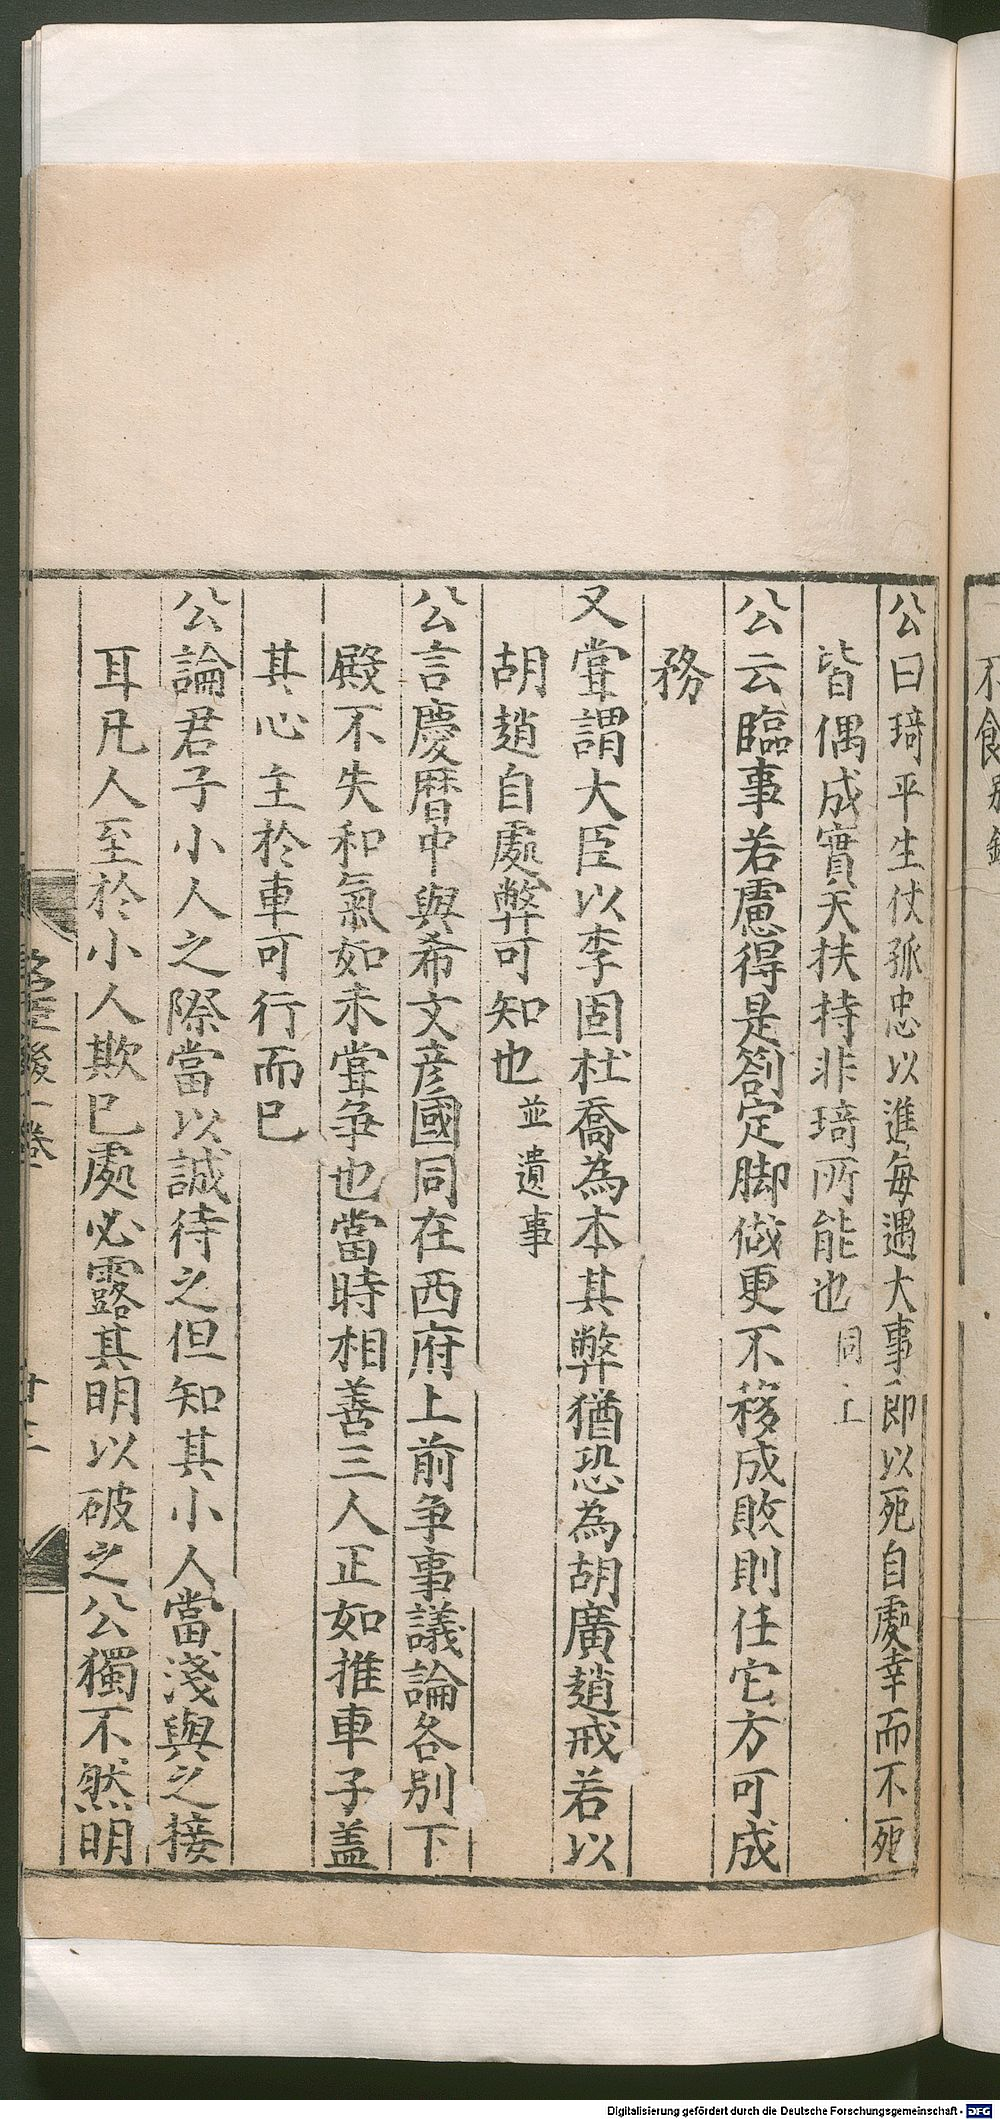 公曰琦平生仗孤忠以進每遇大事即以死自處幸而不死
皆偶成實天扶持非琦所能也同上
公云臨事若慮得是劄定脚做更不移成敗則任它方可成
務
又嘗謂大臣以李固杜喬為本其弊猶恐為胡廣趙戒若以
胡趙自處弊可知也並遺事
公言慶曆中與希文彦國同在西府上前争事議論各別下
殿不失和氣如未嘗争也當時相善三人正如推車子盖
其心主於車可行而已
公論君子小人之際當以誠待之但知其小人當淺與之接
耳凡人至於小人欺已處必露其明以破之公獨不然明
名臣後一卷
廿三
Digitalisierung gefördert durch die Deutsche Forschungsgemeinschaft - DFG